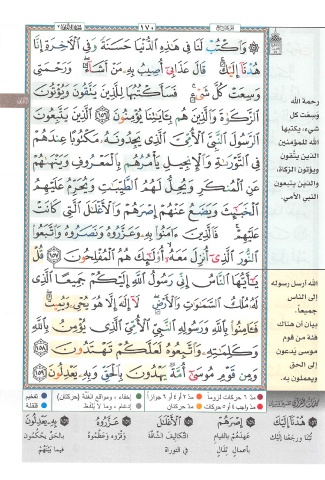 ١٧٠
۞ وَٱكۡتُبۡ لَنَا فِي هَٰذِهِ ٱلدُّنۡيَا حَسَنَةٗ وَفِي ٱلۡأٓخِرَةِ إِنَّا
هُدۡنَآ إِلَيۡكَۚ قَالَ عَذَابِيٓ أُصِيبُ بِهِۦ مَنۡ أَشَآءُۖ وَرَحۡمَتِي
وَسِعَتۡ كُلَّ شَيۡءٖۚ فَسَأَكۡتُبُهَا لِلَّذِينَ يَتَّقُونَ وَيُؤۡتُونَ
ٱلزَّكَوٰةَ وَٱلَّذِينَ هُم بِـَٔايَٰتِنَا يُؤۡمِنُونَ ١٥٦ ٱلَّذِينَ يَتَّبِعُونَ
ٱلرَّسُولَ ٱلنَّبِيَّ ٱلۡأُمِّيَّ ٱلَّذِي يَجِدُونَهُۥ مَكۡتُوبًا عِندَهُمۡ
فِي ٱلتَّوۡرَىٰةِ وَٱلۡإِنجِيلِ يَأۡمُرُهُم بِٱلۡمَعۡرُوفِ وَيَنۡهَىٰهُمۡ
عَنِ ٱلۡمُنكَرِ وَيُحِلُّ لَهُمُ ٱلطَّيِّبَٰتِ وَيُحَرِّمُ عَلَيۡهِمُ
ٱلۡخَبَٰٓئِثَ وَيَضَعُ عَنۡهُمۡ إِصۡرَهُمۡ وَٱلۡأَغۡلَٰلَ ٱلَّتِي كَانَتۡ
عَلَيۡهِمۡۚ فَٱلَّذِينَ ءَامَنُواْ بِهِۦ وَعَزَّرُوهُ وَنَصَرُوهُ وَٱتَّبَعُواْ
ٱلنُّورَ ٱلَّذِيٓ أُنزِلَ مَعَهُۥٓ أُوْلَٰٓئِكَ هُمُ ٱلۡمُفۡلِحُونَ ١٥٧ قُلۡ
يَٰٓأَيُّهَا ٱلنَّاسُ إِنِّي رَسُولُ ٱللَّهِ إِلَيۡكُمۡ جَمِيعًا ٱلَّذِي
لَهُۥ مُلۡكُ ٱلسَّمَٰوَٰتِ وَٱلۡأَرۡضِۖ لَآ إِلَٰهَ إِلَّا هُوَ يُحۡيِۦ وَيُمِيتُۖ
فَـَٔامِنُواْ بِٱللَّهِ وَرَسُولِهِ ٱلنَّبِيِّ ٱلۡأُمِّيِّ ٱلَّذِي يُؤۡمِنُ بِٱللَّهِ
وَكَلِمَٰتِهِۦ وَٱتَّبِعُوهُ لَعَلَّكُمۡ تَهۡتَدُونَ ١٥٨
وَمِن قَوۡمِ مُوسَىٰٓ أُمَّةٞ يَهۡدُونَ بِٱلۡحَقِّ وَبِهِۦ يَعۡدِلُونَ ١٥٩
رحمة الله
وسعت كل
شيء، يكتبها
الله للمؤمنين
الذين يتقون
ويؤتون الزكاة،
والذين يتبعون
النبي الأمي.
الله أرسل رسوله
إلى الناس
جميعاً.
بيان أن هناك
فئة من قوم
موسى يدعون
إلى الحق
ويعملون به.
مدّ ٦ حركات لزوماً
مدّ ٢ أو ٤ أو ٦ جوازاً
إخفاء، ومواقع الغُنَّة (حركتان)
تفخيم
مدّ واجب ٤ أو ٥ حركات
مدّ حركتان
إدغام، وما لا يُلفظ
قلقلة
هُدْنَا إِلَيْكَ
تُبنا ورجعنا إليك
إِصْرَهُمْ
عَهدَهُم بالقيام بأعمال ثقال
الأَغْلَالَ
التكاليف الشاقة في التوراة
عَزَّرُوهُ
وقّروه وعظّموه
بِهِ يَعْدِلُونَ
بالحق يحكمون فيما بينهم